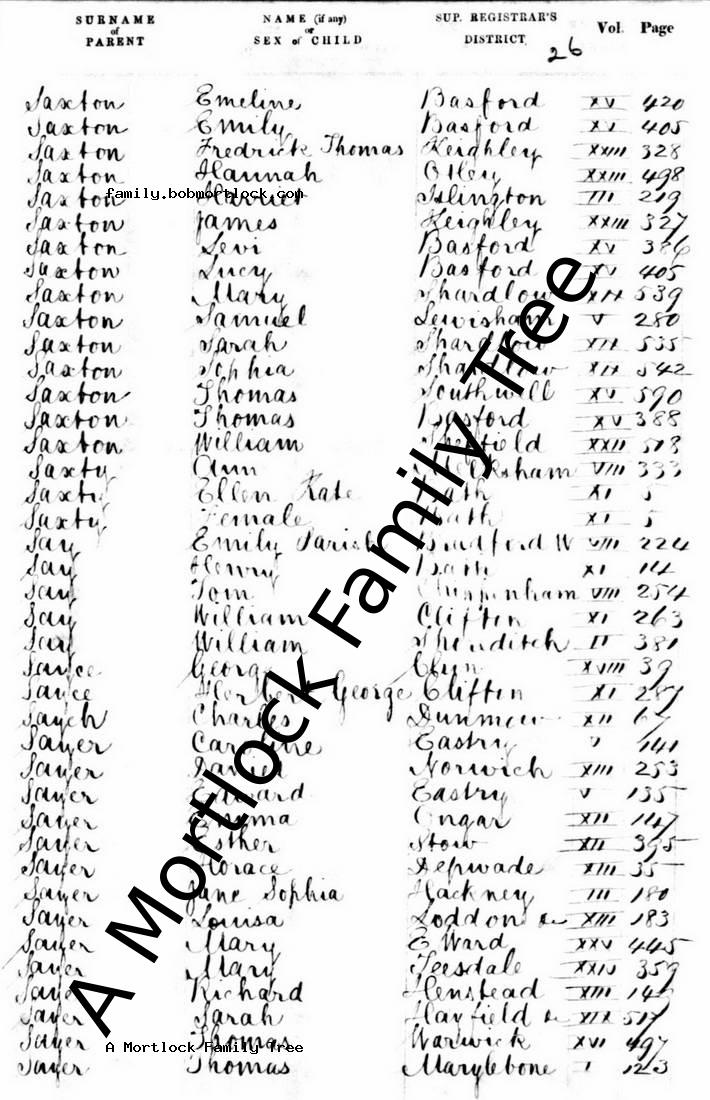 SURNAME of PARENT NAME (if any) or SEX of CHILD SUP. REGISTRAR'S DISTRICT Vol. Page
26
Saxton Emeline Basford XV 420
Saxton Emily Basford XV 405
Saxton Fredrick Thomas Keighley XXIII 328
Saxton Hannah Otley XXIII 498
family.bobmortlock.com
Saxton Harriet Islington III 219
Saxton James Keighley XXIII 327
Saxton Levi Basford XV 386
Saxton Lucy Basford XV 405
Saxton Mary Shardlow XIX 539
Saxton Samuel Lewisham V 280
Saxton Sarah Shardlow XIX 535
Saxton Sophia Shardlow XIX 542
Saxton Thomas Southwell XV 590
Saxton Thomas Basford XV 388
Saxton William Sheffield XXII
Saxty Ann Melksham VIII 333
Saxty Ellen Kate Bath XI 5
Saxty Female Bath XI 5
Say Emily Parish Bradford W VIII 224
Say Henry Bath XI 14
Say Tom Chippenham VIII 254
Say William Clifton XI 263
Say William Shoreditch II 381
Sayce George Clun XVIII 39
Sayce Herbert George Clifton XI
Saych Charles Dunmow XII 67
Sayer Caroline Eastry V 141
Sayer Daniel Norwich XIII 253
Sayer Edward Eastry V 135
Sayer Emma Ongar XII 147
Sayer Esther Stow XII 395
Sayer Horace Depwade XIII 35
Sayer Jane Sophia Hackney III 180
Sayer Louisa Loddon &c XIII 183
Sayer Mary E Ward XXV 445
Sayer Mary Teesdale XXIV 359
Sayer Richard Henstead XIII
Sayer Sarah Hayfield &c XIX 517
Sayer Thomas Warwick XVI 497
A Mortlock Family Tree
Sayer Thomas Marylebone I 123
A Mortlock Family Tree